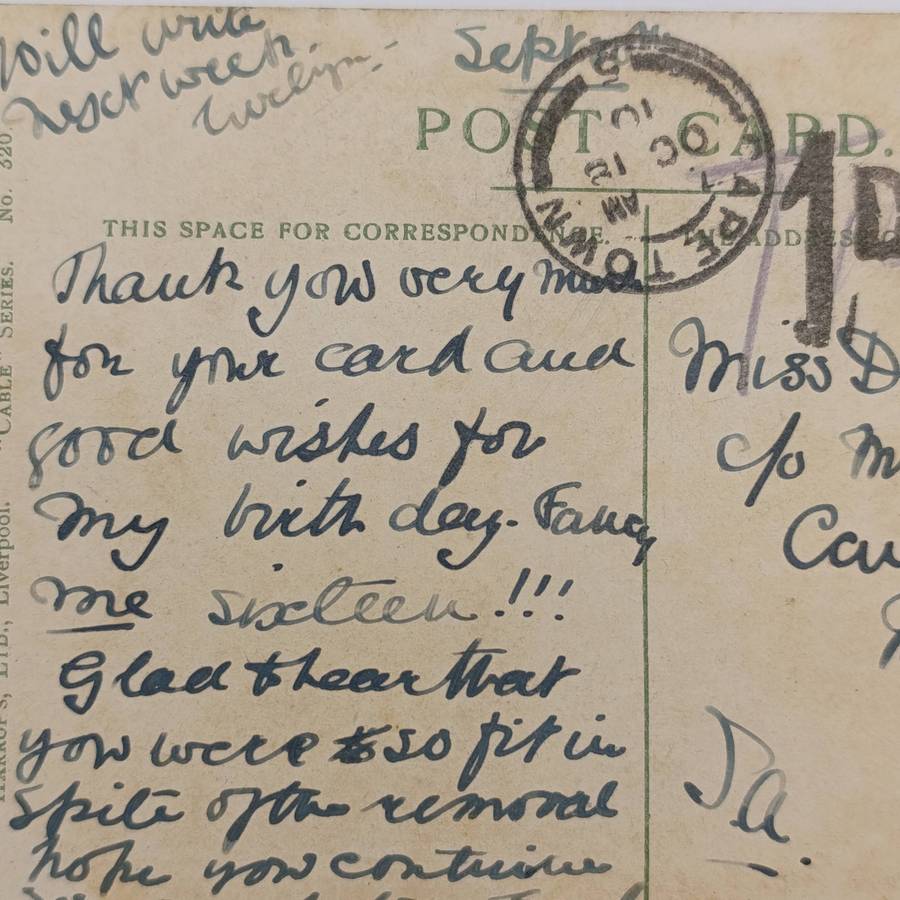 Will write
next week.
Evelyn.
Sept
POST CARD.
CAPE TOWN
5
10
OC
12
AM
1D
THIS SPACE FOR CORRESPONDENCE.
THE ADDRESS O
Thank you very much
for your card and
good wishes for
my birth day. Fancy
me sixteen!!!
Glad to hear that
you were so fit in
spite of the removal
hope you continue
Miss D
c/o M
Ja.
HARROP'S, LTD., Liverpool. "CABLE" SERIES. No. 320.